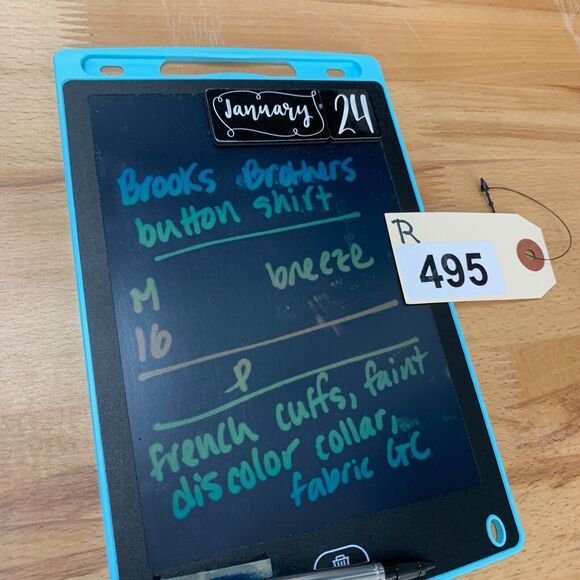 January 24
Brooks Brothers
button shirt
R
495
M breeze
16
french cuffs, faint
discolor collar,
fabric GC